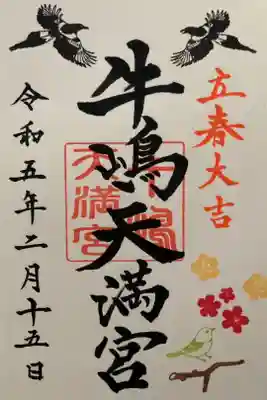 立春大吉
牛嶋天満宮
天満宮
令和五年二月十五日